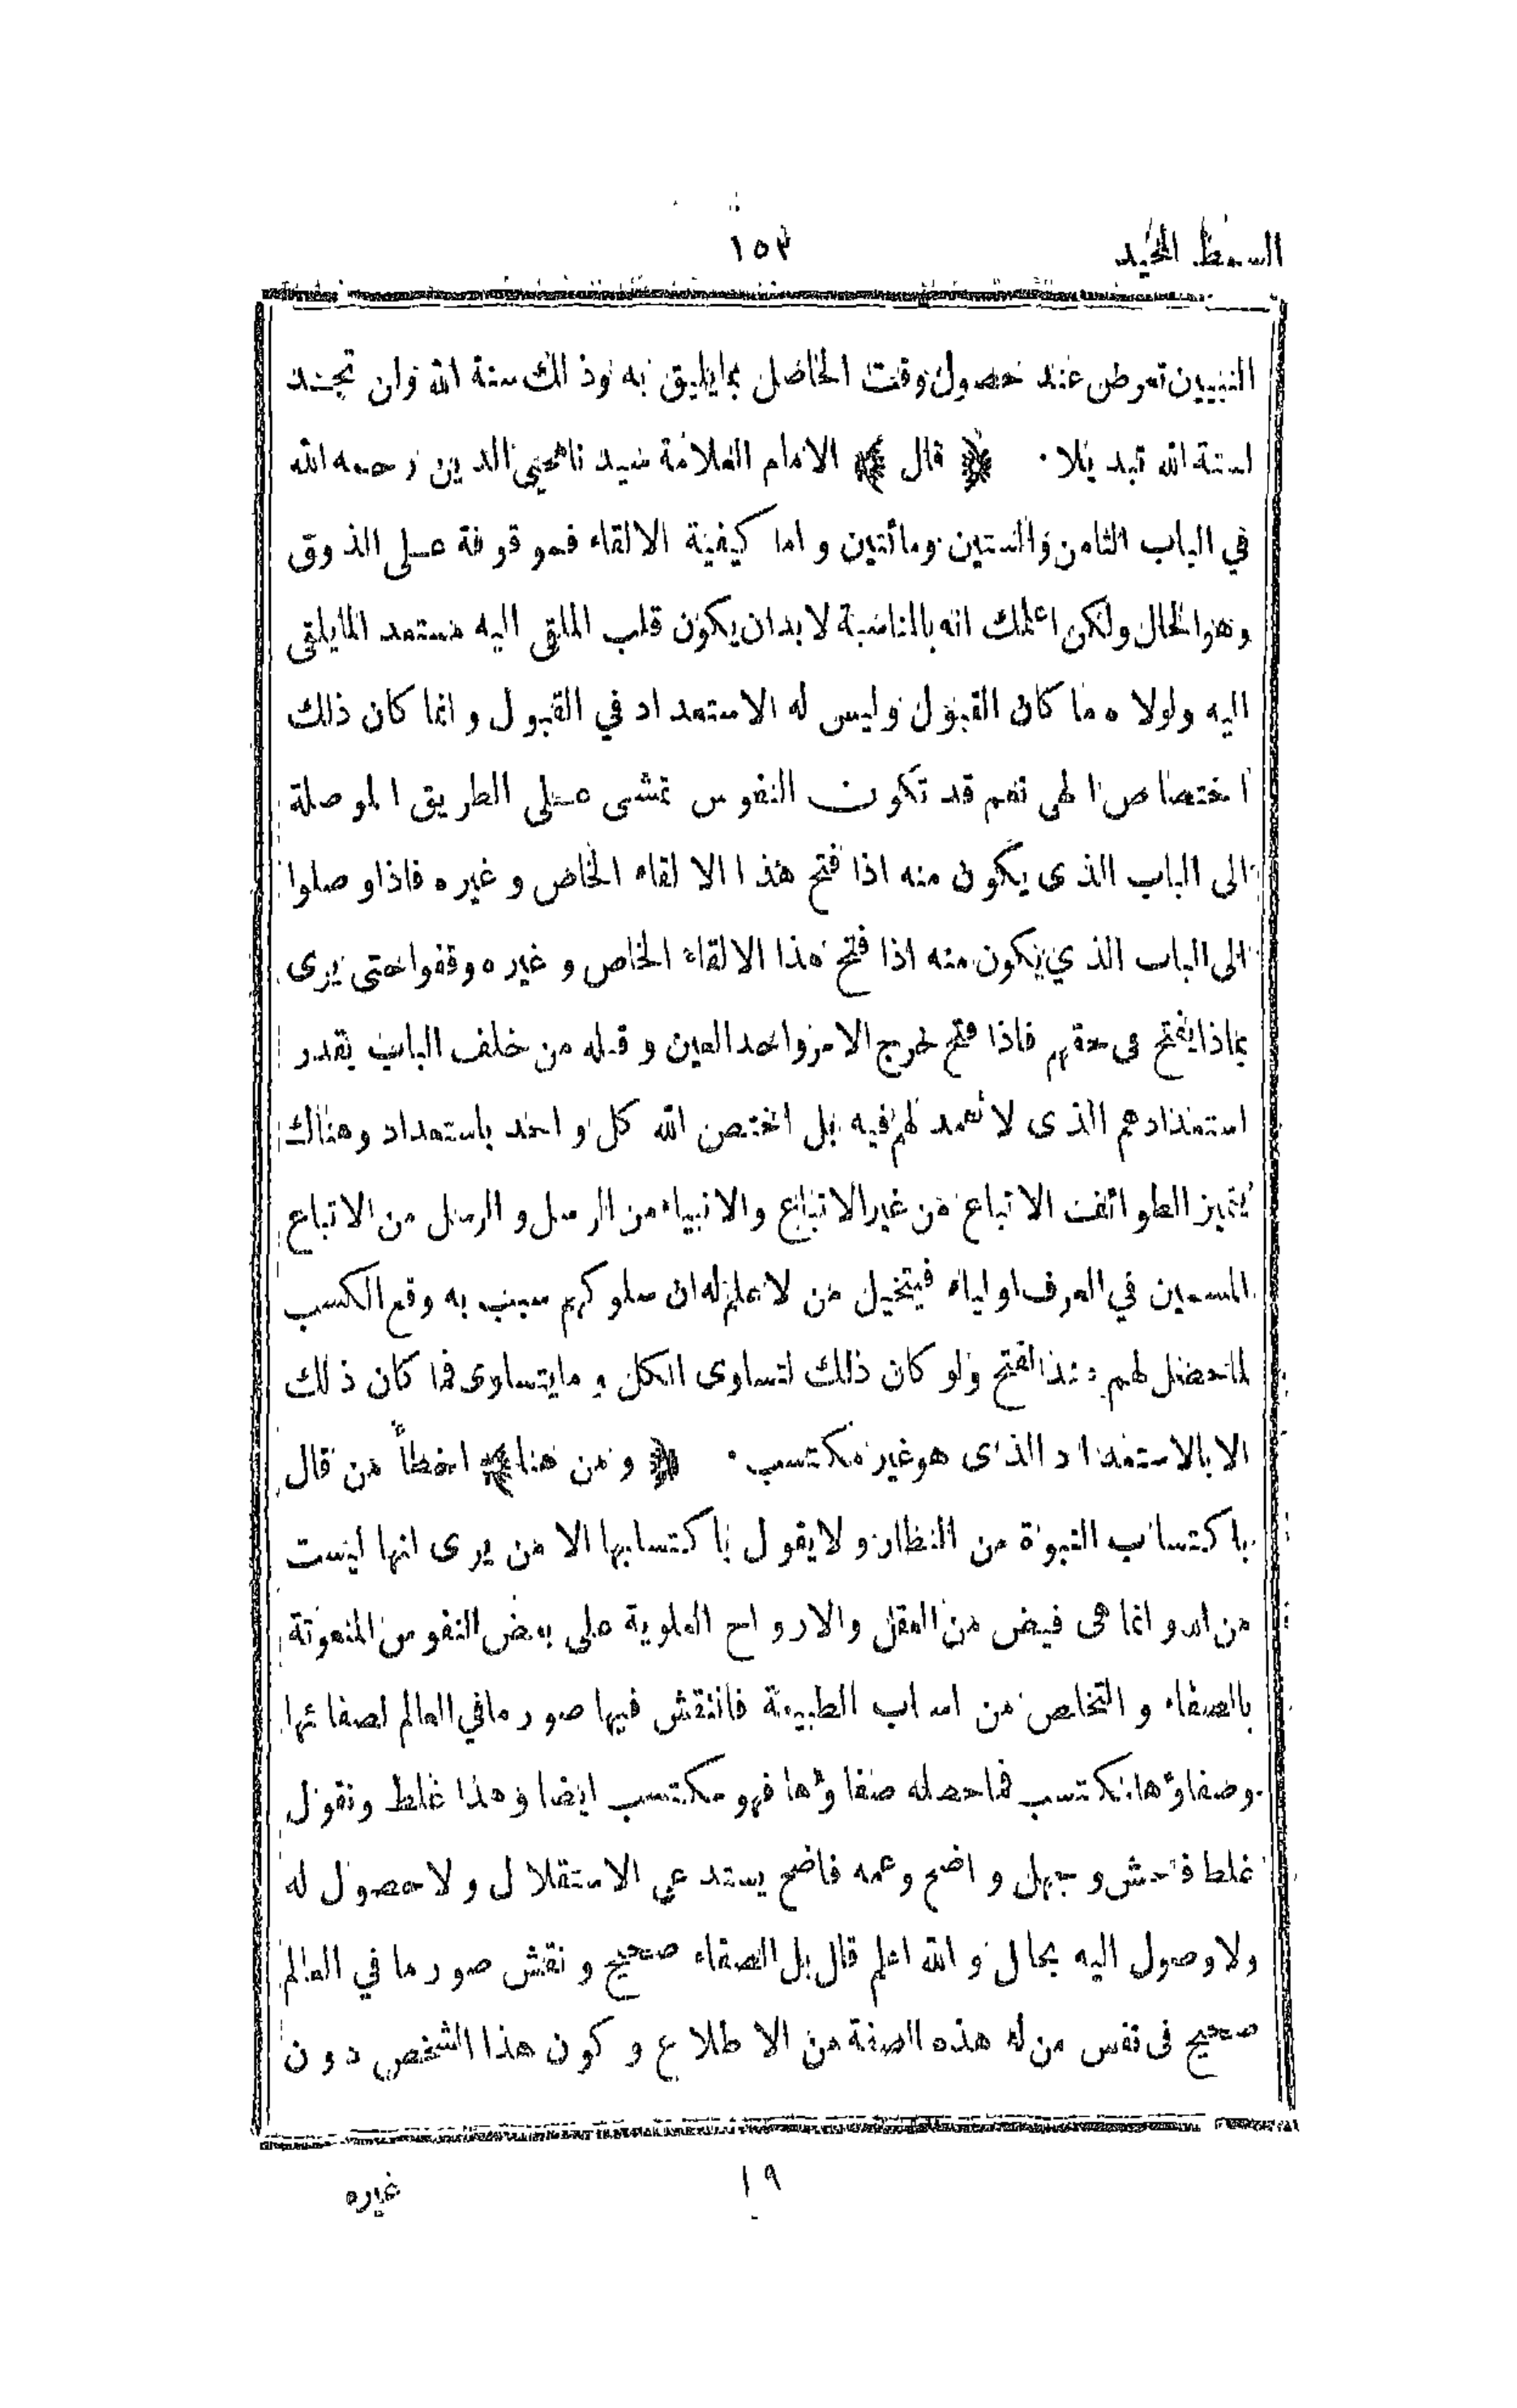 السمط المجيد
١٥٣
النبيين تعرض عند حصول وقت الحاصل بما يليق به وذالك سنة الله ولن تجد
لسنة الله تبديلا · ﴿ قال ﴾ الامام العلامة سيدنا محيي الدين رحمه الله
في الباب الثامن والستين ومائتين واما كيفية الالقاء فموقوفة على الذوق
وهو الحال ولكن اعلمك انه بالمناسبة لابد ان يكون قلب الملقى اليه مستعد المايلقى
اليه ولولاه ما كان القبول وليس له الاستعداد في القبول وانما كان ذلك
اختصاص الهى نعم قد تكون النفوس تمشى على الطريق الموصلة
الى الباب الذى يكون منه اذا فتح هذا الالقاء الخاص وغيره فاذا وصلوا
الى الباب الذي يكون منه اذا فتح هذا الالقاء الخاص وغيره وقفوا حتى يرى
بماذا يفتح فى حقهم فاذا فتح خرج الامر واحد العين وقبله من خلف الباب بقدر
استعدادهم الذى لا تعمد لهم فيه بل اختص الله كل واحد باستعداد وهناك
يتميز الطوائف الاتباع من غير الاتباع والانبياء من الرسل والرسل من الاتباع
المسمين في العرف اولياء فيتخيل من لا علم له ان سلوكهم سبب به وقع الكسب
لما حصل لهم هذا الفتح ولو كان ذلك لتساوى الكل وما يتساوى فما كان ذلك
الا بالاستعداد الذى هو غير مكتسب · ﴿ ومن هنا ﴾ اخطأ من قال
باكتساب النبوة من النظار ولا يقول باكتسابها الا من يرى انها ليست
من الله وانما هى فيض من العقل والارواح العلوية على بعض النفوس المنعوتة
بالصفاء والتخلص من اسباب الطبيعة فانتقش فيها صور ما في العالم لصفائها
وصفاؤها مكتسب فما حصله صفاؤها فهو مكتسب ايضا وهذا غلط ونقول
غلط فاحش وجهل واضح وعمه فاضح يستدعي الاستقلال ولا حصول له
ولا وصول اليه بحال والله اعلم قال بل الصفاء صحيح ونقش صور ما في العالم
صحيح فى نفس من له هذه الصفة من الاطلاع وكون هذا الشخص دون
١٩
غيره